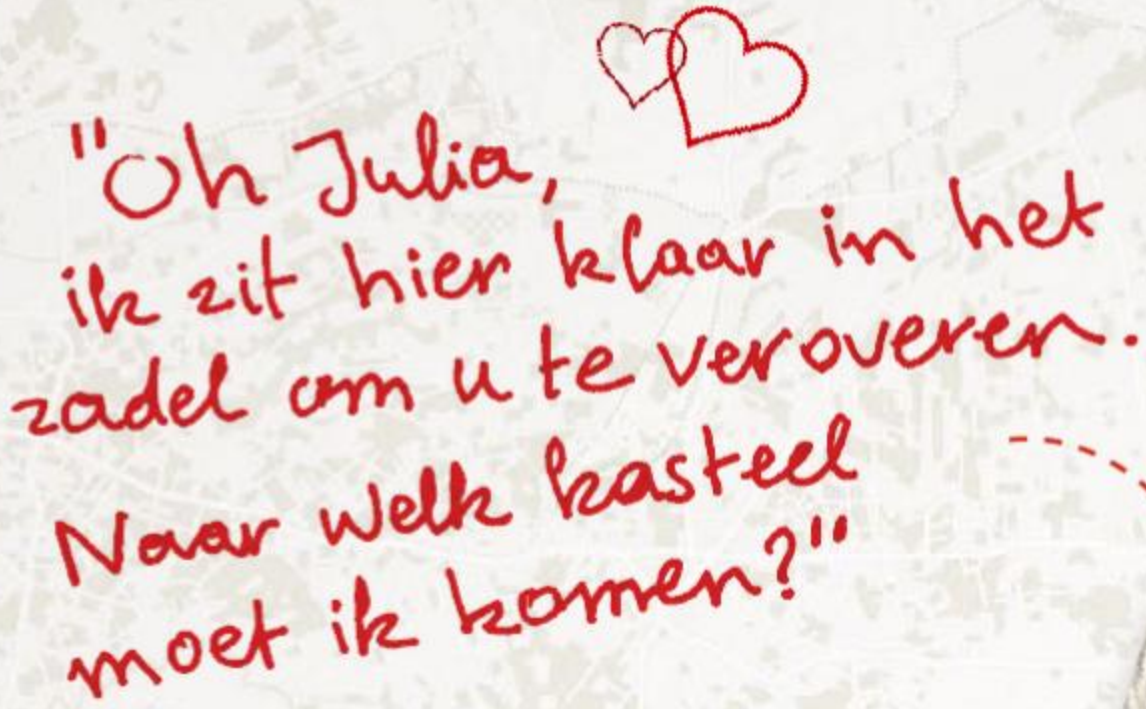 "Oh Julia,
ik zit hier klaar in het
zadel om u te veroveren.
Naar welk kasteel
moet ik komen?"